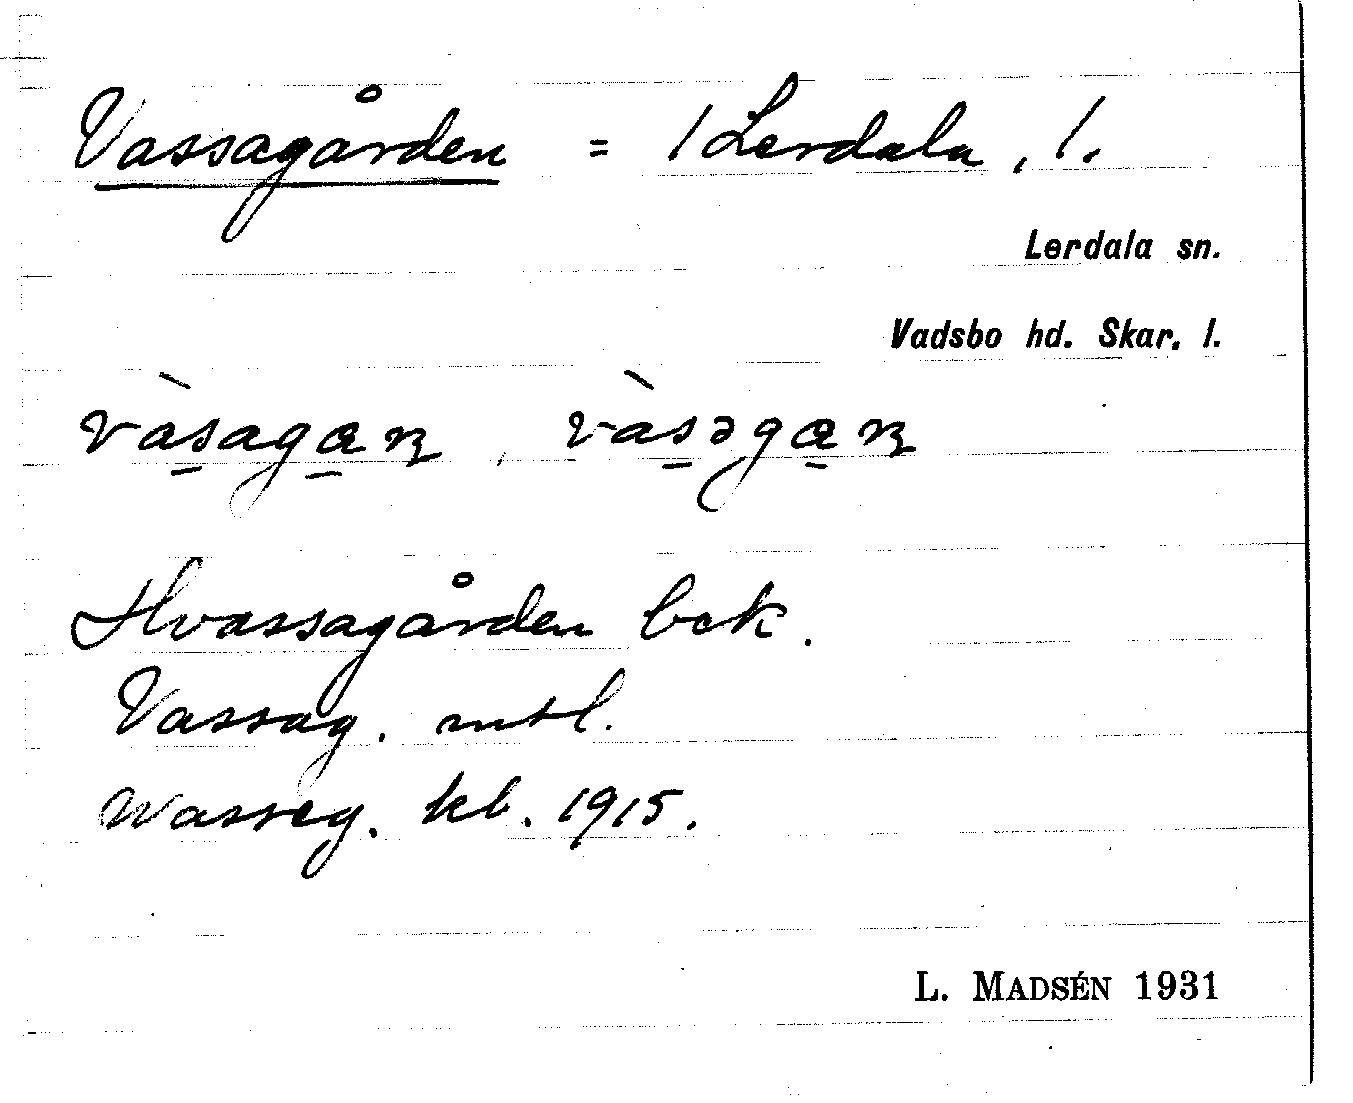 Vassagården = 1 Lerdala, 1.
Lerdala sn.
Vadsbo hd. Skar. l.
vàsagæɳ, vàsəgæɳ
Hvassagården bek.
Vassag. mtl.
Wasseg. kb. 1915.
L. MADSÉN 1931